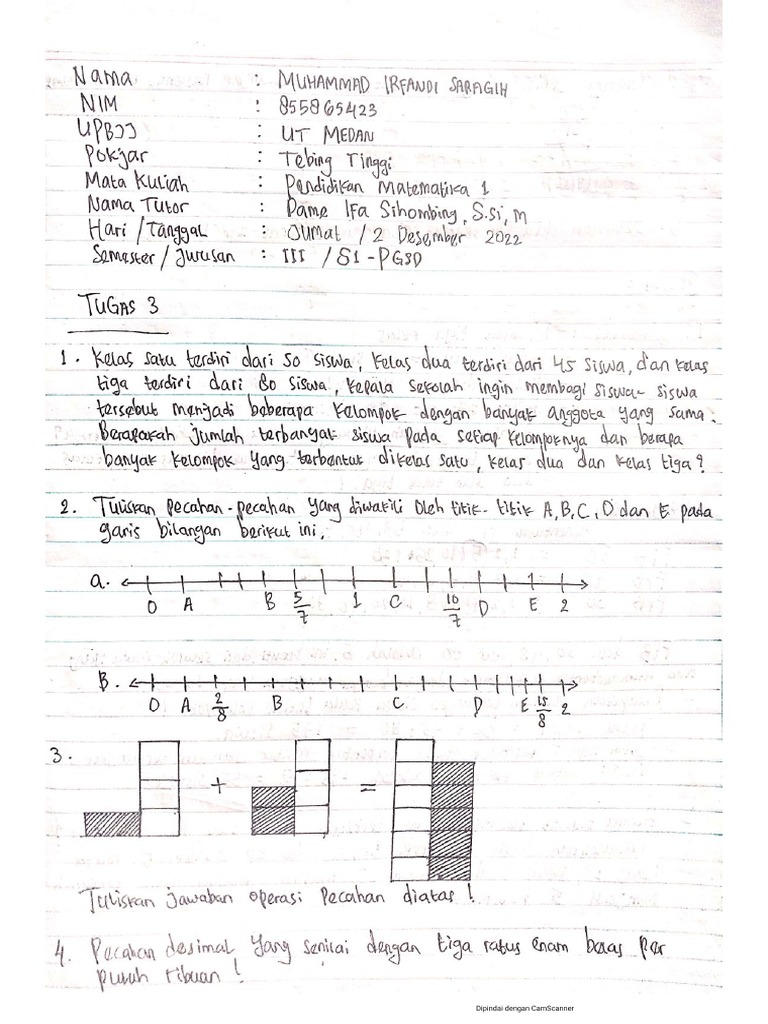 Nama : MUHAMMAD IRFANDI SARAGIH
NIM : 855865423
UPBJJ : UT MEDAN
Pokjar : Tebing Tinggi
Mata Kuliah : Pendidikan Matematika 1
Nama Tutor : Dame Ifa Sihombing, S.si, M
Hari / Tanggal : Jumat / 2 Desember 2022
Semester / Jurusan : III / S1 - PGSD
TUGAS 3
1. Kelas satu terdiri dari 50 siswa, Kelas dua terdiri dari 45 siswa, dan kelas
tiga terdiri dari 60 siswa, Kepala sekolah ingin membagi siswa- siswa
tersebut menjadi beberapa kelompok dengan banyak anggota yang sama.
Berapakah jumlah terbanyak siswa pada setiap kelompoknya dan berapa
banyak kelompok yang terbentuk dikelas satu, kelas dua dan kelas tiga?
2. Tuliskan pecahan-pecahan yang diwakili oleh titik-titik A, B, C, D dan E pada
garis bilangan berikut ini,
a. 0 A B 5/7 1 C 10/7 D E 2
B. 0 A 2/8 B C D E 15/8 2
3. + =
Tuliskan jawaban operasi pecahan diatas!
4. Pecahan desimal yang senilai dengan tiga ratus enam belas per
puluh ribuan!
Dipindai dengan CamScanner